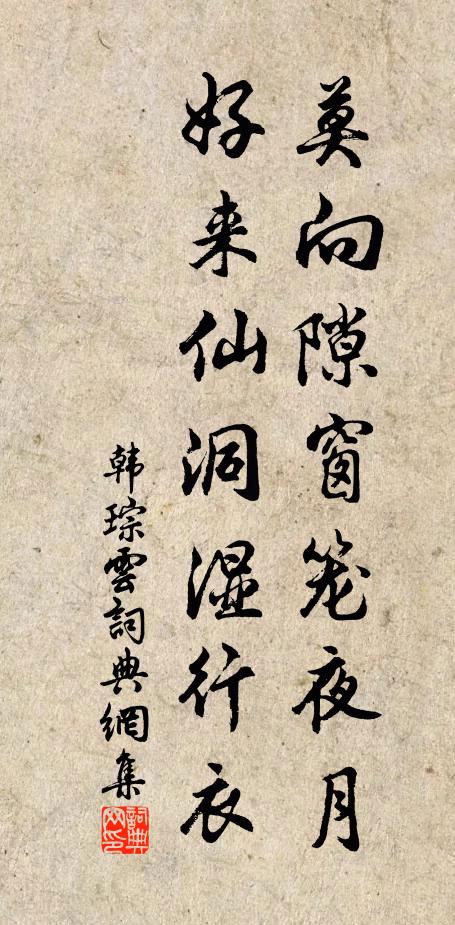 莫向隙窗笼夜月
好来仙洞湿行衣
韩琮雲詞典網集
詞典網印